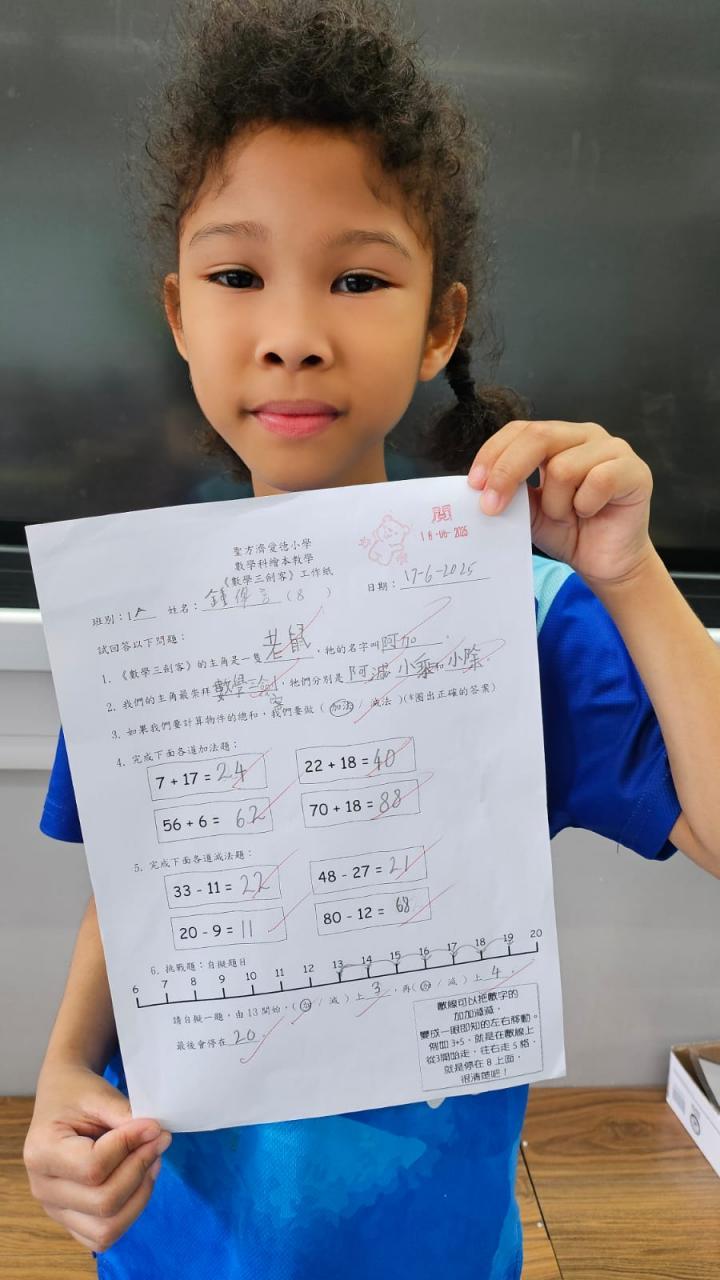 聖方濟愛德小學
數學科繪本教學
《數學三劍客》工作紙
閱
18-06-2025
班別：1 姓名： (8) 日期：17-6-2025
試回答以下問題：
1. 《數學三劍客》的主角是一隻老鼠，牠的名字叫阿加。
2. 我們的主角最崇拜數學三劍客，牠們分別是阿減 小乘和小除。
3. 如果我們要計算物件的總和，我們要做（加法 / 減法）(*圈出正確的答案)
4. 完成下面各道加法題：
7 + 17 = 24 22 + 18 = 40
56 + 6 = 62 70 + 18 = 88
5. 完成下面各道減法題：
33 - 11 = 22 48 - 27 = 21
20 - 9 = 11 80 - 12 = 68
6. 挑戰題：自擬題目
6 7 8 9 10 11 12 13 14 15 16 17 18 19 20
請自擬一題，由 13 開始，(加 / 減) 上 3，再(加 / 減) 上 4，
最後會停在 20。
數線可以把數字的
加加減減，
變成一眼即知的左右移動。
例如 3+5，就是在數線上
從3開始走，往右走 5 格，
就是停在 8 上面，
很清楚吧！